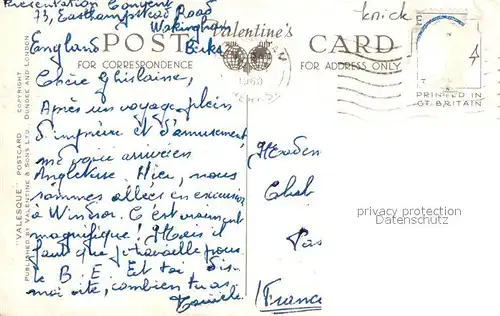 Presentation Convent
73, Easthampstead Road
Wokingham
England Berks
knick
POST CARD
Valentine's
FOR CORRESPONDENCE
FOR ADDRESS ONLY
1960
PRINTED IN
GT. BRITAIN
"VALESQUE" POSTCARD
PUBLISHED BY VALENTINE & SONS LTD.
COPYRIGHT
DUNDEE AND LONDON
Chère Ghislaine,
Après un voyage plein
d'imprévu et d'amusement
me voici arrivée en
Angleterre. Hier, nous
sommes allées en excursion
à Windsor. C'est vraiment
magnifique! Mais il
faut que je travaille pour
le B.E. Et toi, dis-
moi vite, combien tu as
Pas
(France
privacy protection
Datenschutz